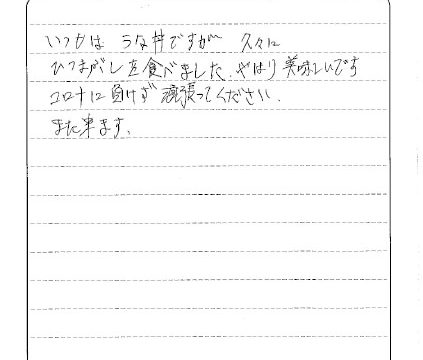 いつもは うな丼ですが 久々に
ひつまぶしを食べました。やはり美味しいです
コロナに負けず頑張ってください。
また来ます。